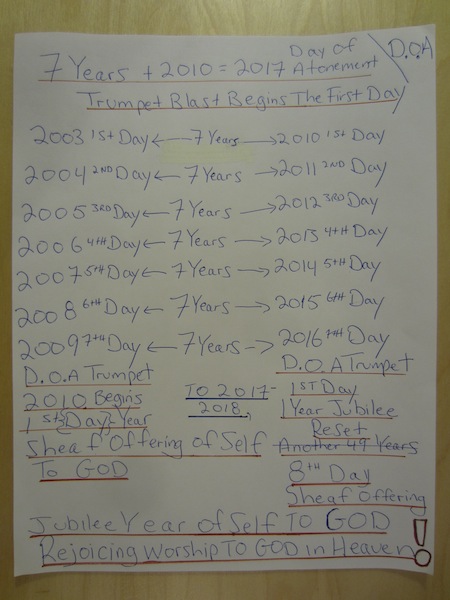 7 Years + 2010 = 2017 Day of Atonement D.O.A
Trumpet Blast Begins The First Day
2003 1st Day ← 7 Years → 2010 1st Day
2004 2ND Day ← 7 Years → 2011 2ND Day
2005 3RD Day ← 7 Years → 2012 3RD Day
2006 4th Day ← 7 Years → 2013 4th Day
2007 5th Day ← 7 Years → 2014 5th Day
2008 6th Day ← 7 Years → 2015 6th Day
2009 7th Day ← 7 Years → 2016 7th Day
D.O.A Trumpet
2010 Begins
1st {Day} Year
Sheaf Offering of Self
To GOD
TO 2017-
2018,
D.O.A Trumpet
1ST Day
1 Year Jubilee
Reset
Another 49 Years
8th Day
Sheaf Offering
Jubilee Year of Self TO GOD
Rejoicing Worship TO GOD in Heaven!